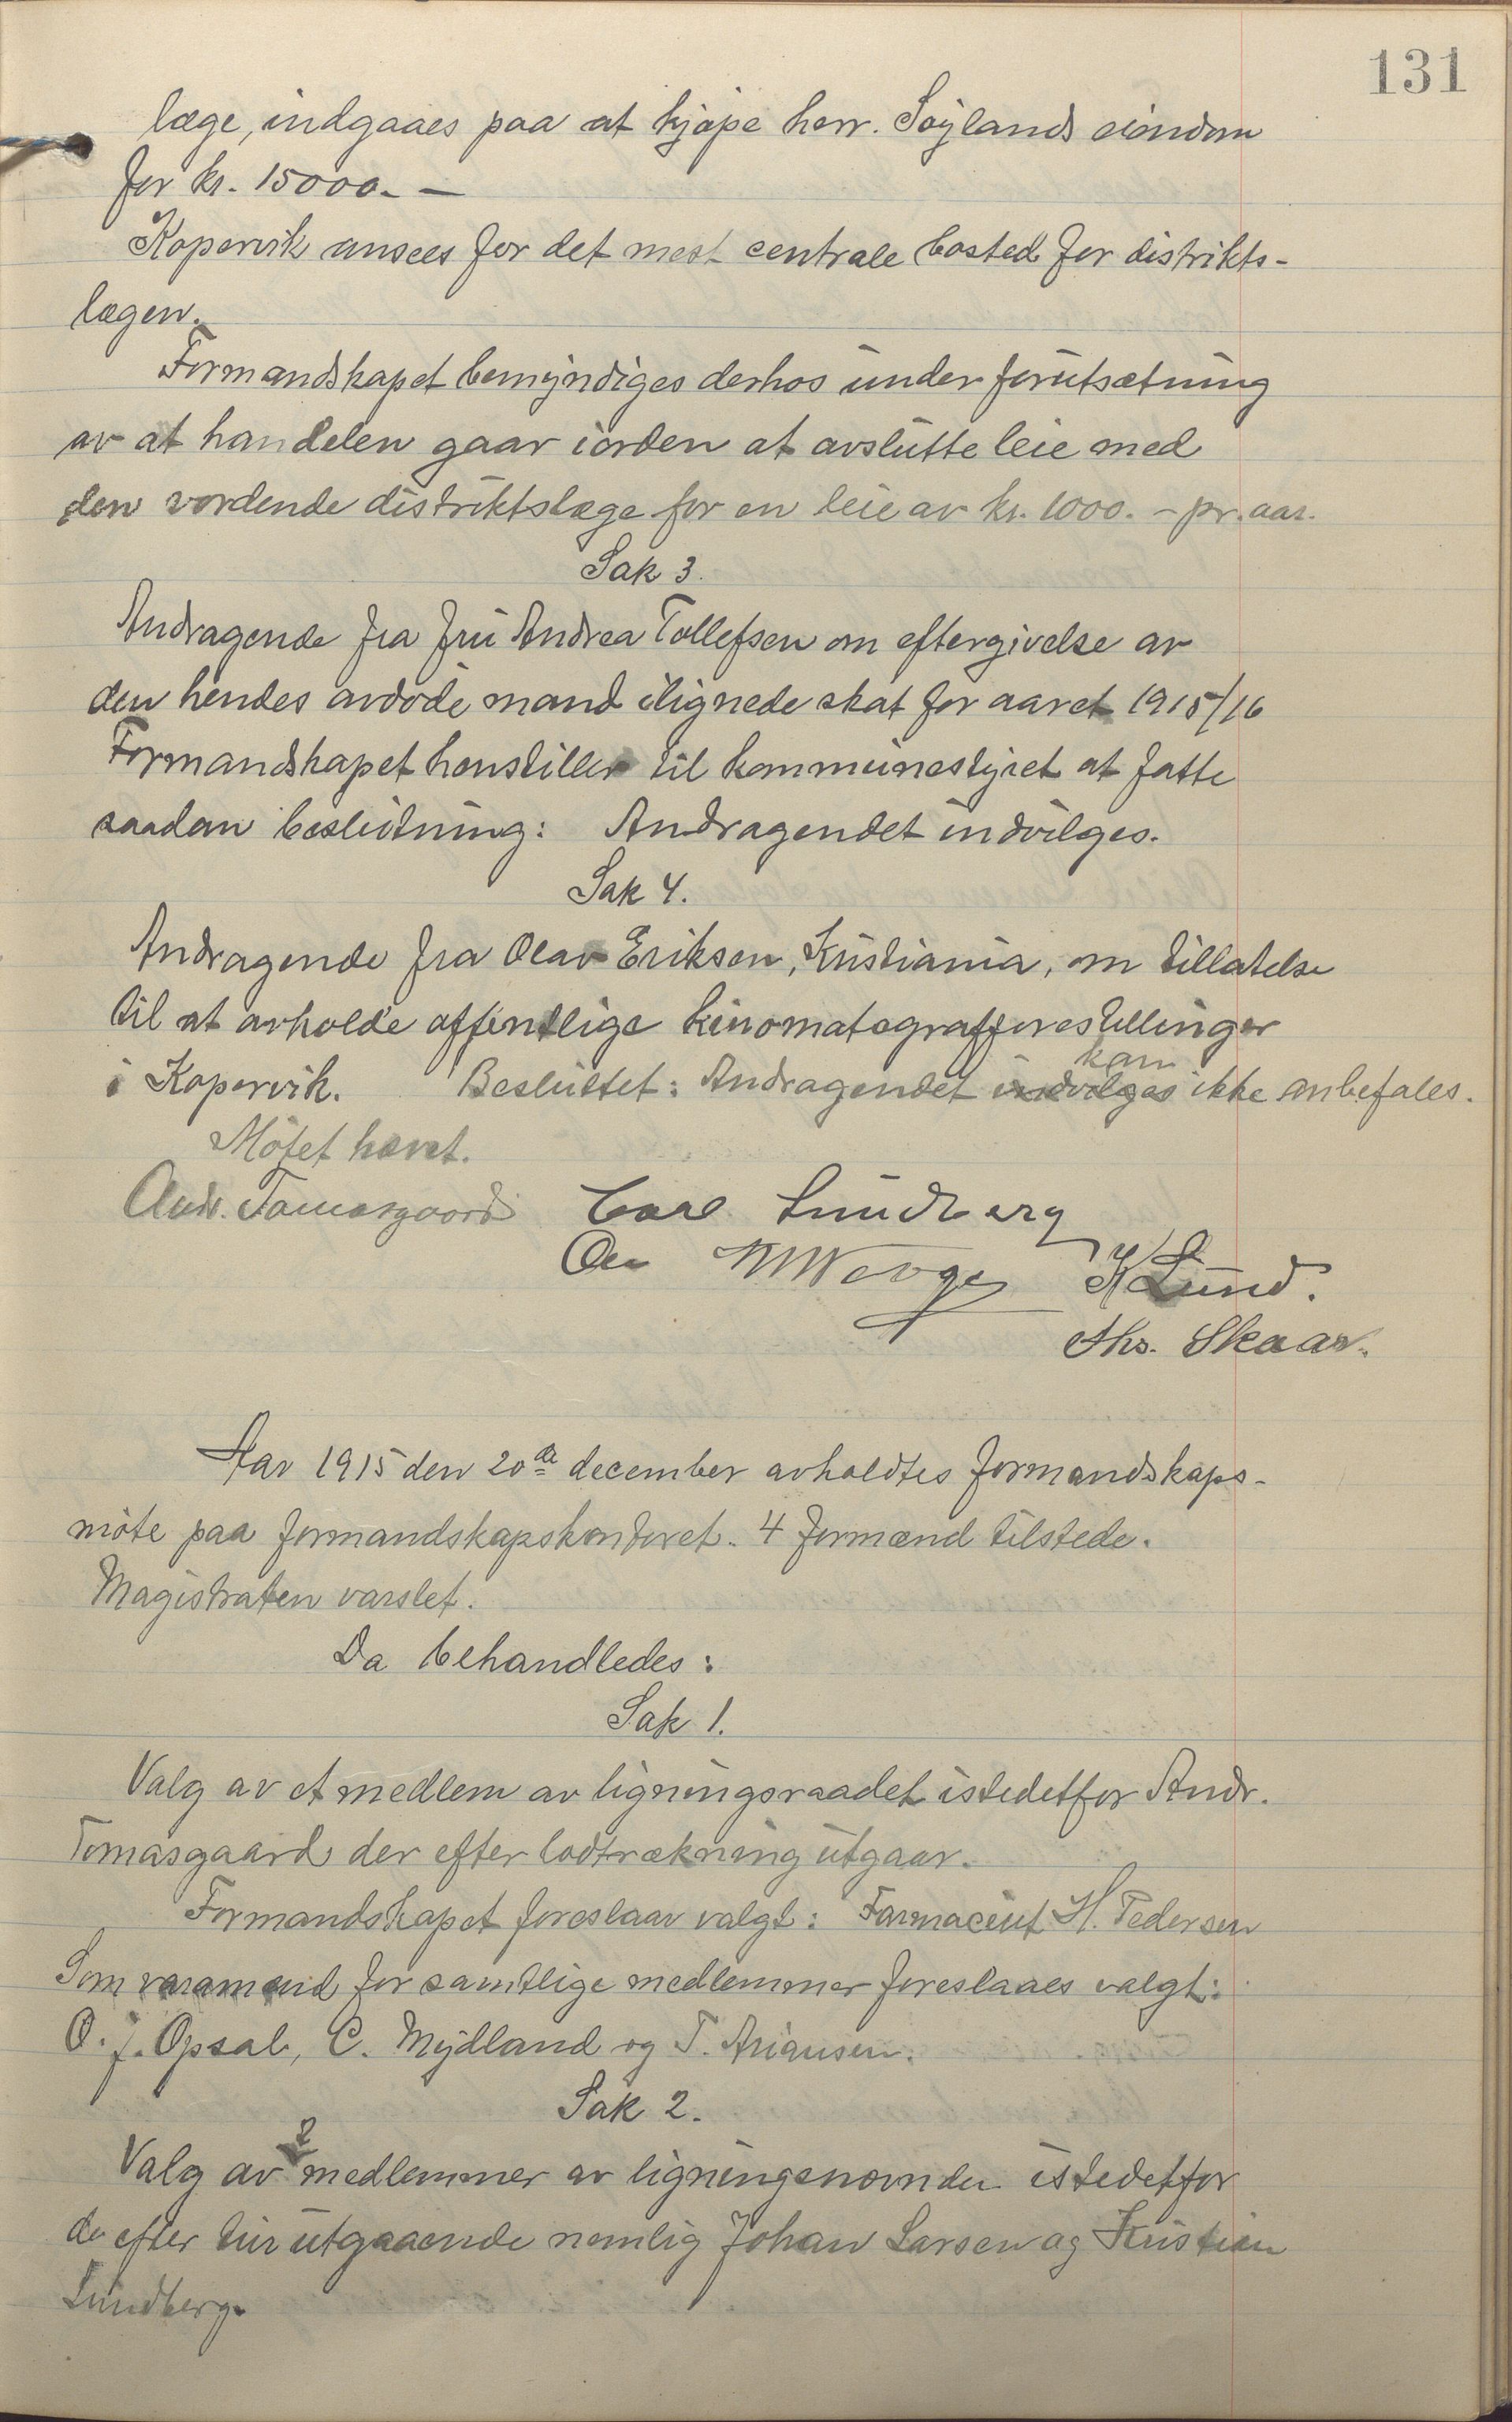 131
læge, indgaaes paa at kjøpe herr. Søylands eiendom
for kr. 15000.-
Kopervik ansees for det mest centrale bosted for distrikts-
lægen.
Formandskapet bemyndiges derhos under forutsætning
av at handelen gaar iorden at avslutte leie med
den vordende distriktslæge for en leie av kr. 1000.- pr. aar.
Sak 3.
Andragende fra fru Andrea Tollefsen om eftergivelse av
den hendes avdøde mand ilignede skat for aaret 1915/16
Formandskapet henstiller til kommunestyret at fatte
saadan beslutning: Andragendet indvilges.
Sak 4.
Andragende fra Olav Eriksen, Kristiania, om tillatelse
til at avholde offentlige kinomatografforestillinger
i Kopervik. Besluttet: Andragendet indvilges kan ikke anbefales.
Møtet hævet.
Andr. Tomasgaard Carl Lundberg
K Lund.
Ths. Skaar.
Aar 1915 den 20de december avholdtes formandskaps-
møte paa formandskapskontoret. 4 formænd tilstede.
Magistraten varslet.
Da behandledes:
Sak 1.
Valg av et medlem av ligningsraadet istedetfor Andr.
Tomasgaard der efter lodtrækning utgaar.
Formandskapet foreslaar valgt: Farmaceut H. Pedersen
Som varamænd for samtlige medlemmer foreslaaes valgt:
O. J. Opsal, C. Mydland og T. Ariansen.
Sak 2.
Valg av 2 medlemmer av ligningsnævnden istedetfor
de efter tur utgaaende nemlig Johan Larsen og Kristian
Lundberg.